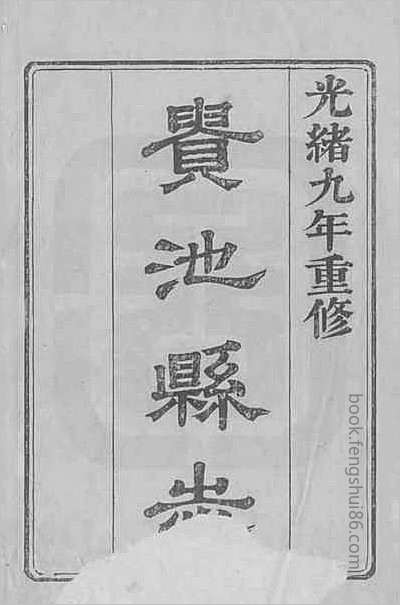 光緒九年重修
貴池縣志
book.fengshui86.com